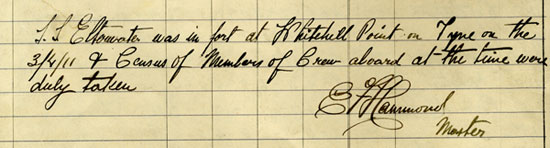 S.S Eltonwater was in port at Whitehill Point on Tyne on the
3/4/11 & Census of Members of Crew aboard at the time were
duly taken
Hammond
Master